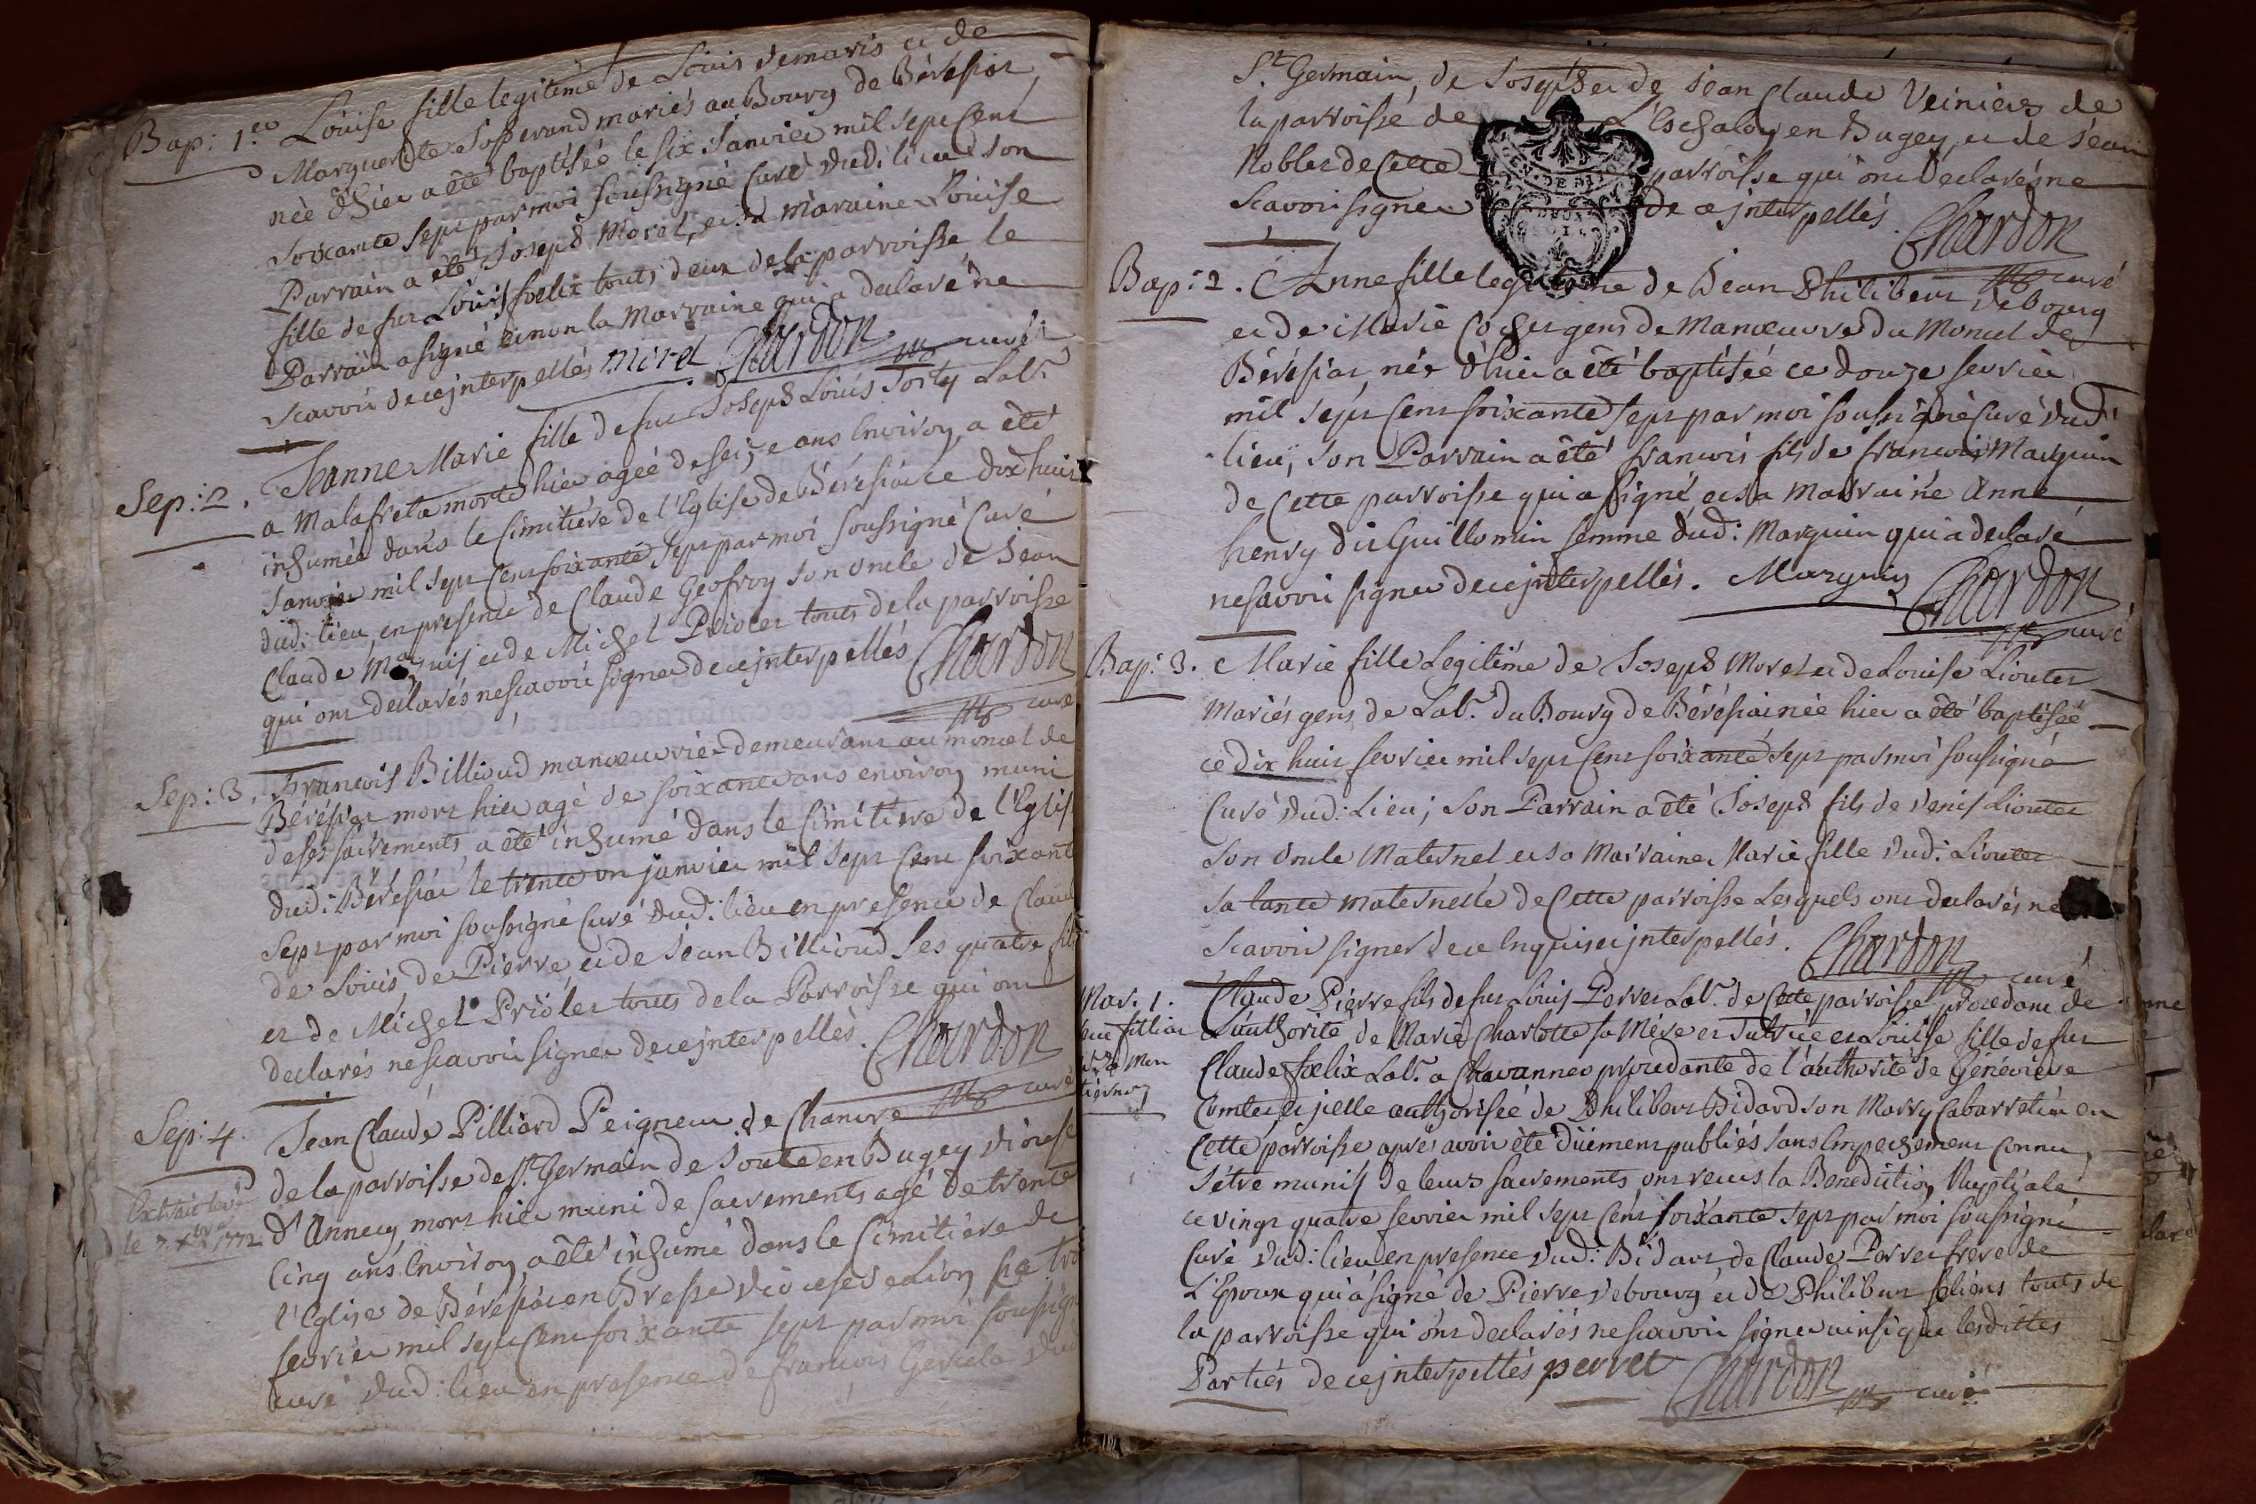 Bap: 1.ere Louise fille legitime de Louis Demaris et de
Marguerite Josserand mariés au Bourg de BéréSiat
née d'hier a été baptisée le six Janvier mil sept Cent
soixante sept par moi soussigné Curé dud: lieu son
Parrain a été Joseph Morel, et sa maraine Louise
fille de feu Louis foelix touts deux de la parroisse le
Parrain a signé et non la Marraine qui a declaré ne
scavoir de ce jnterpellés morel Chardon curé
Sep: 2. Jeanne Marie fille de feu Joseph Louis Lab.r
a Malafreta morte hier agée de seize ans Environ a été
inhumée dans le Cimitiére de l'Eglise de BéréSiat ce dix huit
Janvier mil sept Cent soixante sept par moi soussigné Curé
dud: lieu en presence de Claude Geofroy son oncle de Jean
Claude et de Michel Prioler touts de la parroisse
qui ont declarés ne scavoir signer de ce jnterpellés Chardon
curé
Sep: 3. François Billioud manoeuvrier demeurant au moncel de
BéréSiat mort hier agé de soixante ans environ muni
de ses sacrements a été inhumé dans le Cimitiére de l'Eglise
dud: BéréSiat le trente un janvier mil sept Cent soixante
sept par moi soussigné Curé dud: lieu en presence de Claude
de Louis de Pierre et de Jean Billioud ses quatre fils
et de Michel Prioler touts de la Parroisse qui ont
declarés ne scavoir signer de ce jnterpellés. Chardon
curé
Sep: 4. Jean Claude Pilliard Peigneur de Chanvre
de la parroisse de St. Germain de Joux en Bugey Diocese
Extrait levé
le 7 1772
d'Annecy mort hier muni de sacrements agé de trente
Cinq ans Environ a été inhumé dans le Cimitiére de
l'Eglise de BéréSiat en Bresse diocese de Lion
fevrier mil sept Cent soixante sept par moi soussigné
curé dud: lieu en presence de francois
St Germain, de Joseph et de Jean Claude Veinieres de
la parroisse de L'Eschaloy en Bugey, et de Jean
Nobles de Cette parroisse qui ont declarés ne
scavoir signer de ce jnterpellés. Chardon
curé
Bap: 2. Anne fille legitime de Jean Philibert debourg
et de Marie Cocher gens de Manoeuvre du Moncel de
BéréSiat, née d'hier a été baptisée ce douze fevrier
mil sept Cent soixante sept par moi soussigné Curé dud:
lieu, son Parrain a été francois fils de francois Marguin
de Cette parroisse qui a signé et sa Marraine Anne
henry dit Guillomin femme dud: Marguin qui a declaré
ne savoir signer de ce jnterpellés. Marguin Chardon
curé
Bap: 3. Marie fille Legitime de Joseph Morel et de Louise Liouter
Mariés gens de Lab.r du Bourg de BéréSiat née hier a été baptisée
ce dix huit fevrier mil sept Cent soixante sept par moi soussigné
Curé dud: Lieu; son Parrain a été Joseph fils de denis Liouter
son oncle Maternel et sa Marraine Marie fille dud: Liouter
sa tante maternelle de Cette parroisse Lesquels ont declarés ne
scavoir signer de ce Enquis et jnterpellés. Chardon
curé
Mar. 1. Claude Pierre fils de feu Louis Perret Lab.r de Cette parroisse procedant de
L'authorité de Marie Charlotte sa Mére et Tutrice et Louise fille de feu
Claude foelix Lab.r a Chavannes procedante de l'authorité de Généviéve
Comte et jcelle authorisée de Philibert Bidard son Marry Cabarretier en
Cette parroisse aprés avoir été düement publiés sans Empechement Connu,
s'étre munis de leurs sacrements ont reçus la Benediction Nuptiale
ce vingt quatre fevrier mil sept Cent soixante sept par moi soussigné
Curé dud: lieu en presence dud: Bidard de Claude Perret frére de
L'Epoux qui a signé de Pierre debourg et de Philibert touts de
la parroisse qui ont declarés ne scavoir signer ainsi que lesdittes
Parties de ce jnterpellés perret Chardon curé